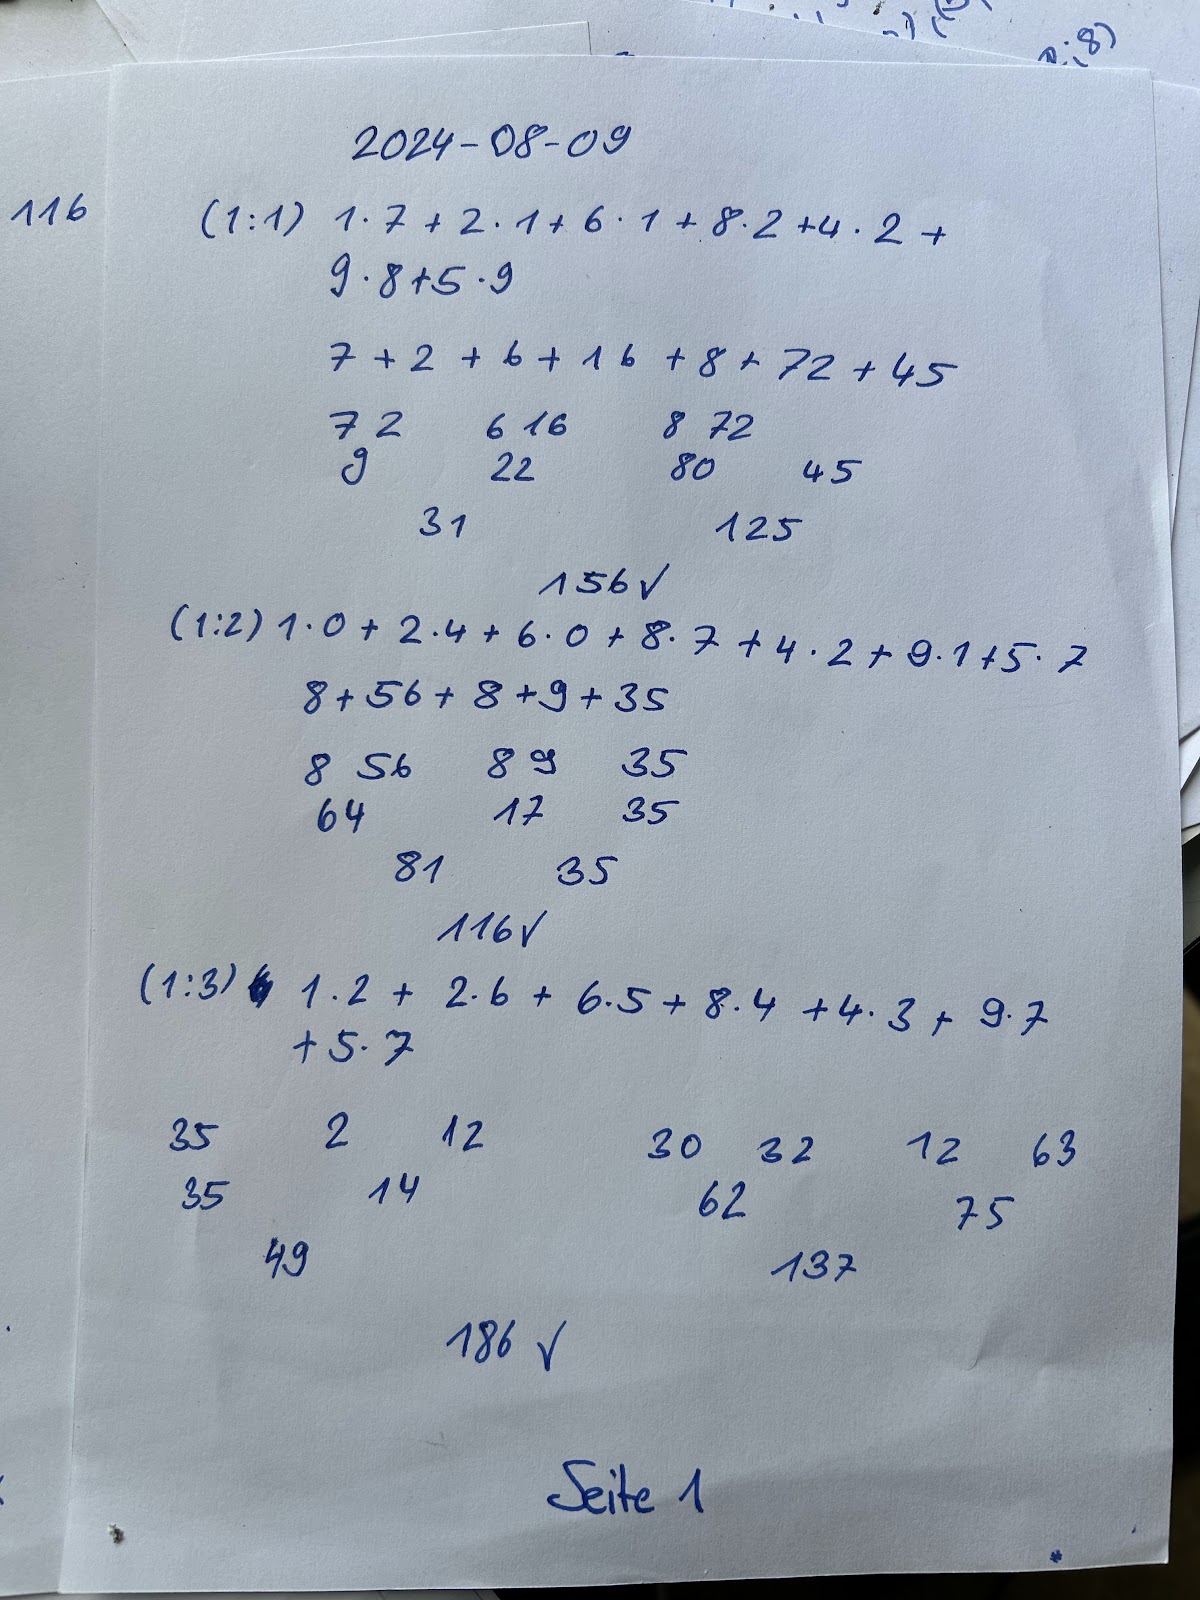 2024-08-09
116
(1:1) 1·7 + 2·1 + 6·1 + 8·2 + 4·2 +
9·8 + 5·9
7 + 2 + 6 + 16 + 8 + 72 + 45
7 2 6 16 8 72
9 22 80 45
31 125
156 ✓
(1:2) 1·0 + 2·4 + 6·0 + 8·7 + 4·2 + 9·1 + 5·7
8 + 56 + 8 + 9 + 35
8 56 8 9 35
64 17 35
81 35
116 ✓
(1:3) 1·2 + 2·6 + 6·5 + 8·4 + 4·3 + 9·7
+ 5·7
35 2 12 30 32 12 63
35 14 62 75
49 137
186 ✓
Seite 1